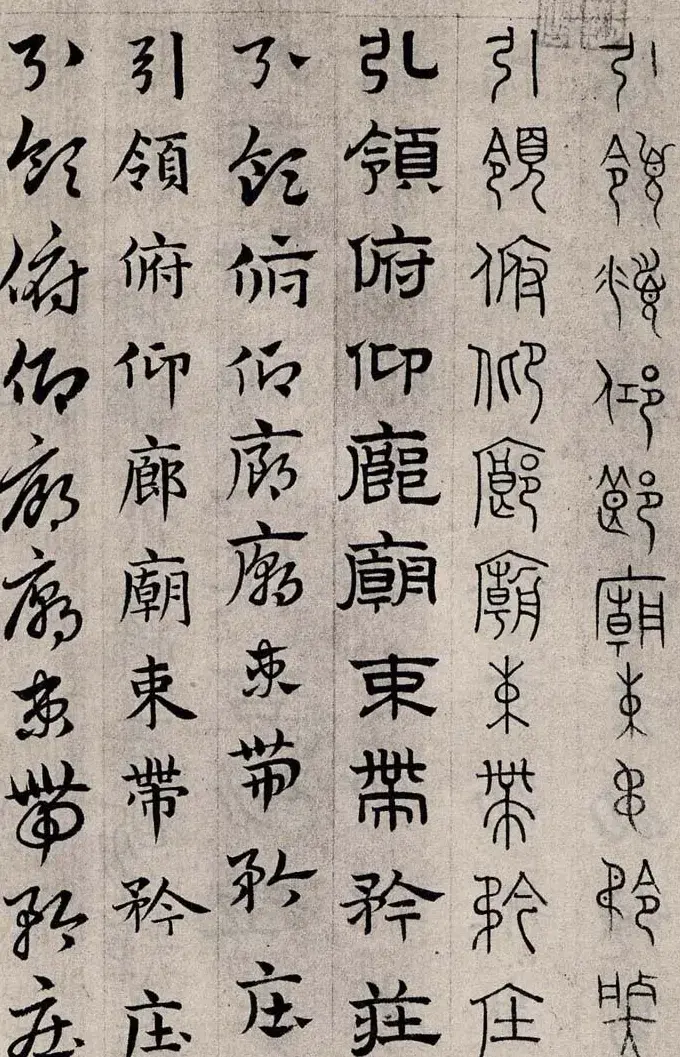 引領俯仰廊廟束帶矜莊
引領俯仰廊廟束帶矜莊
引領俯仰廊廟束帶矜莊
引領俯仰廊廟束帶矜庄
引領俯仰廊廟束帶矜庄
引領俯仰廊廟束帶矜庄